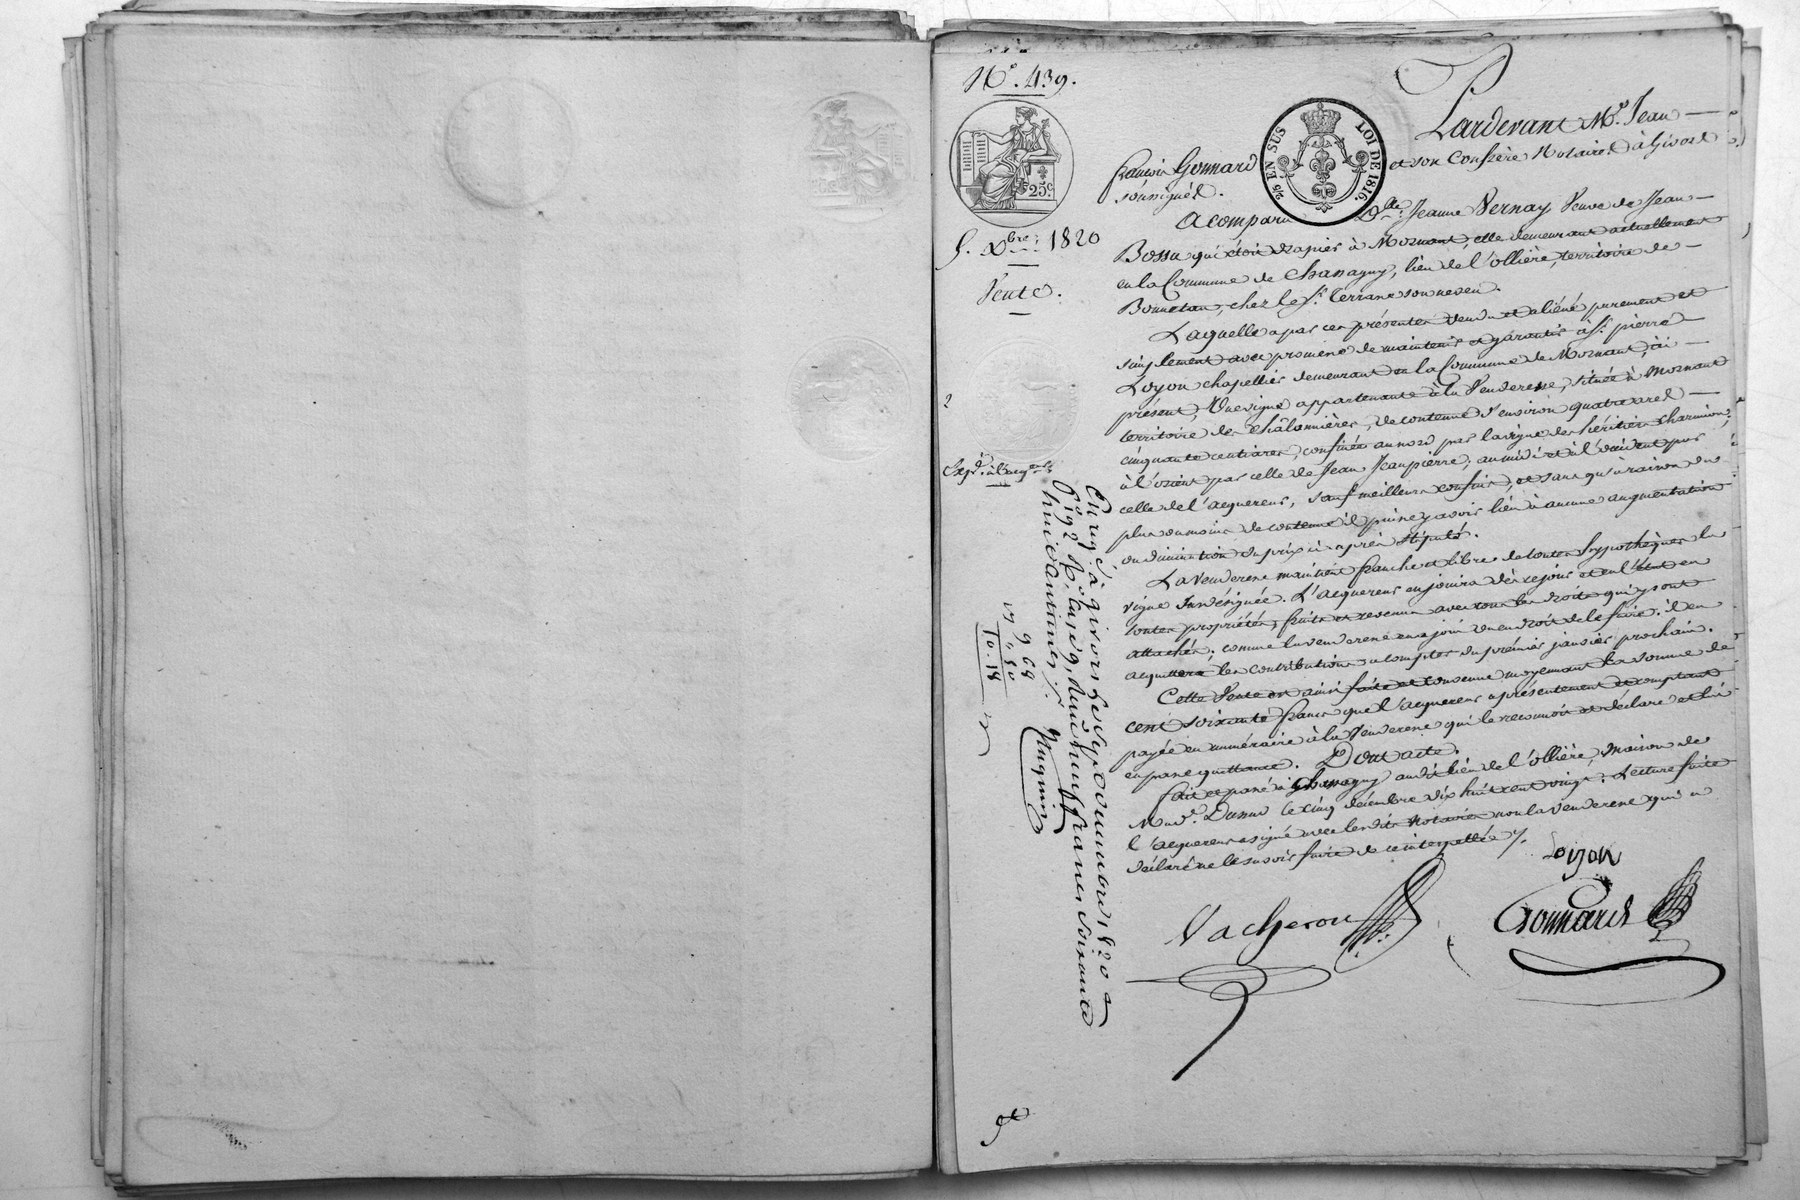 N.° 439.
25.c
2/5 EN SUS LOI DE 1816.
5. Xbre. 1820
Vente.
Pardevant Me. Jean
françois Gonnard et son confrère Notaires à Givors
soussignés.
A comparu Jeanne Vernay Veuve de Jean
Bossu qui étoit drapier à Mornant, elle demeurant actuellement
en la Commune de Chassagny, lieu de l'ollière, territoire de
chez le Sr. son neveu.
Laquelle a par ces présentes vendu et aliéné purement et
simplement avec promesse de maintenir et garantir à Sr. pierre
Loyon chapellier demeurant en la Commune de Mornant, ici
présent, Une vigne appartenante à la Venderesse, située à Mornant
territoire des châlonnières, de contenue d'environ quatre ares
cinquante centiares, confinée au nord par la vigne des héritiers
à l'orient par celle de Jean Jeanpierre, au midi et à l'occident par
celle de l'acquereur, sauf meilleurs confins, et sans qu'à raison du
plus ou moins de contenue il puisse y avoir lieu à aucune augmentation
ou diminution du prix ci-après stipulé.
La Venderesse maintient franche et libre de toutes hypothèques la
vigne susdésignée. L'acquereur en jouira dès ce jour et en l'état en
toutes propriétés, fruits et revenus avec tous les droits qui y sont
attachés, comme la venderesse en a joui ou en droit de le faire. il en
acquittera les contributions à compter du prémier janvier prochain.
Cette Vente est ainsi faite et convenue moyennant la somme de
cent soixante francs que l'acquereur a présentement et comptant
payée en numéraire à la Venderesse qui le reconnoit et déclare et lui
en passe quittance. Dont acte.
fait et passé à Chassagny audit lieu de l'ollière, Maison de
le cinq décembre dix huit cent vingt. Lecture faite
l'acquereur a signé avec lesdits Notaires non la Venderesse qui a
déclaré ne le savoir faire de ce interpellée ./.
Loyon
Vacheron
Gonnard
2
Enrug.é à Givors le Sept décembre 1820
f.° 192 R. Case 9. Reçu neuf francs soixante
huit centimes ./.
9 68
" 50
10. 18